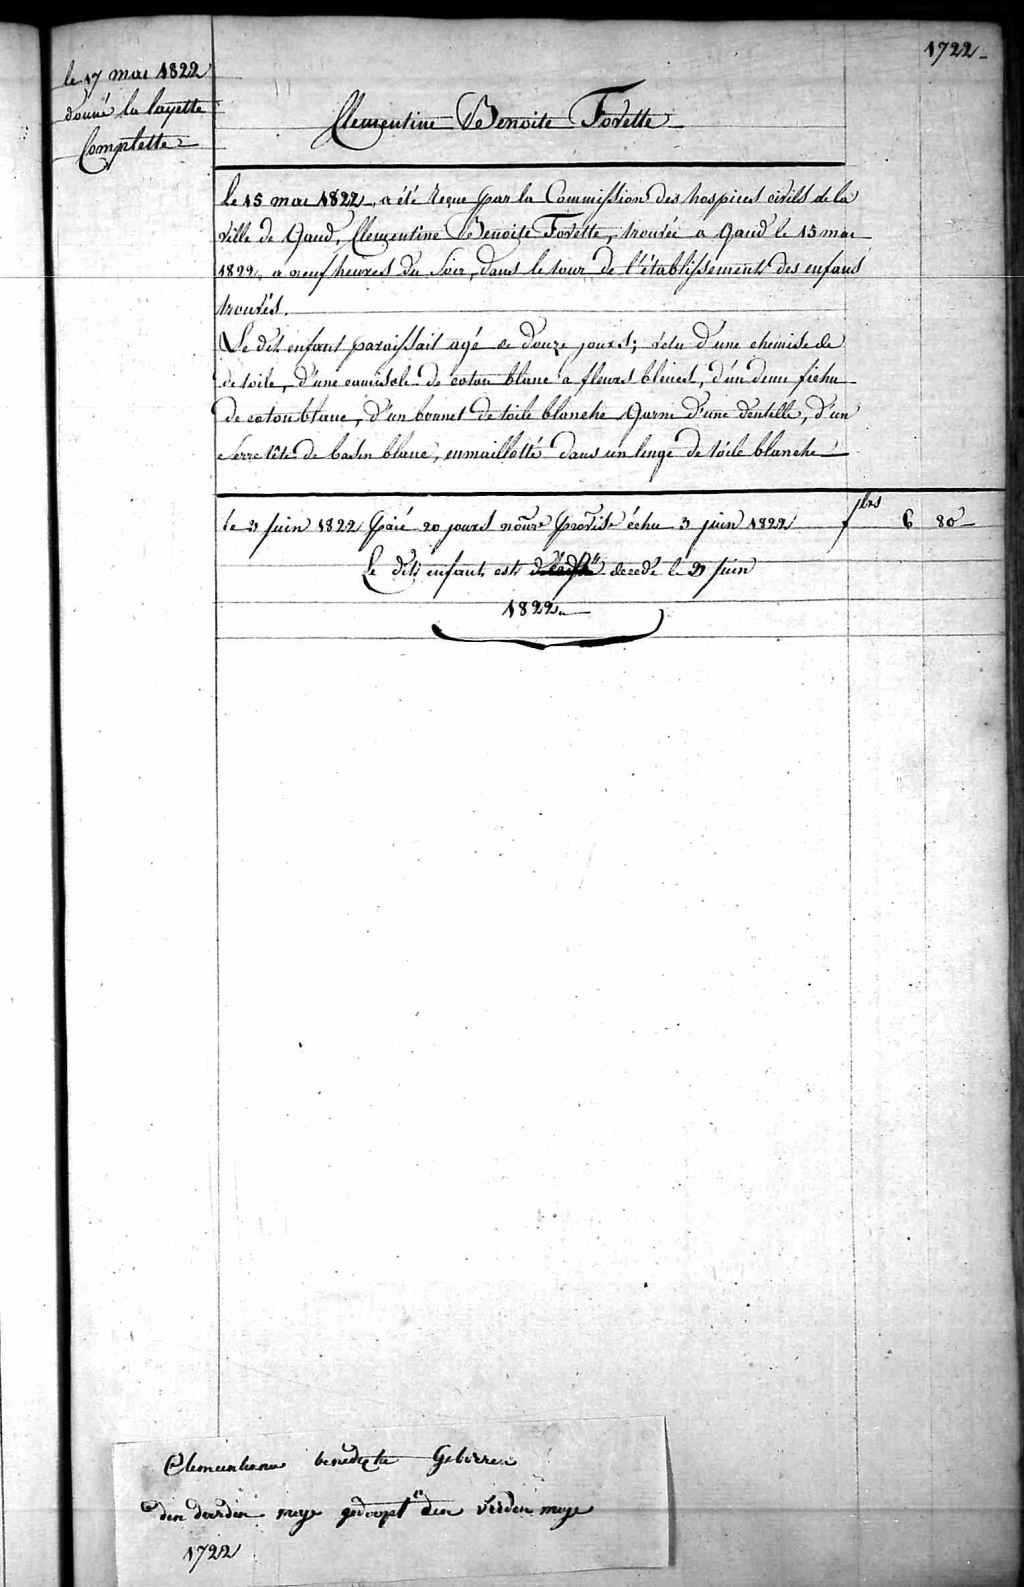 1722
le 17 mai 1822
donné la layette
Complette
Clementine Benoite Forette
Le 15 mai 1822, a été reçue par la Commission des hospices civils de la
ville de Gand, Clementine Benoite Forette, trouvée a Gand le 15 mai
1822, a neuf heures du soir, dans le tour de l'établissement des enfans
trouvés.
Le dit enfant paraissait agé de douze jours; vetu d'une chemise de
de toile, d'une camisole de coton blanc a fleurs bleues, d'un demi fichu
de coton blanc, d'un bonnet de toile blanche garni d'une dentelle, d'un
serre tête de basin blanc, enmaillotté dans un linge de toile blanche
le 3 juin 1822 païé 20 jours nourre provise échu 3 juin 1822 6 80
Le dit enfant est decedé le 3 juin
1822
benedicte Geboren
den derden meye gedoopt den vierden meye
1722